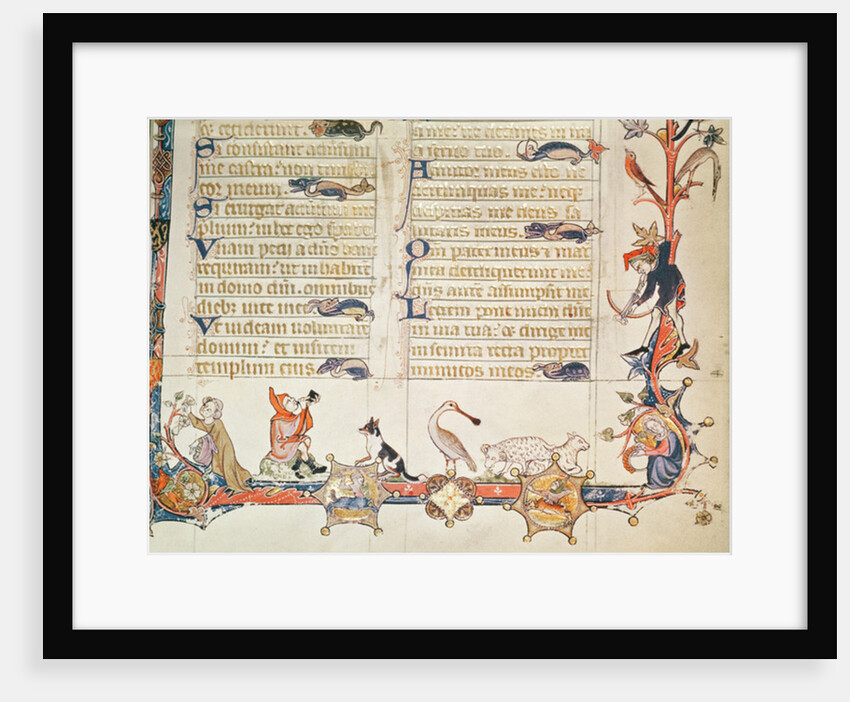 & ceciderunt.
Si consistant aduersum
me castra: non timebit
cor meum
Si exurgat aduersum me
plium: in hoc ego spabo
Vnam pecii a dño hanc
requiram: ut inhabite
in domo dñi. omnibus
diebz uite mee
Vt uideam uoluntate
domini: et uisitem
templum eius
a me: ne declines in ira
a seruo tuo.
Adiutor meus esto ne
derelinquas me: neqz
despicias me deus sa
lutaris meus.
Qm pater meus & mat
mea dereliquerunt me
dñs aute assumpsit me
Legem pone michi dñe
in uia tua: & dirige me
in semita recta propter
inimicos meos